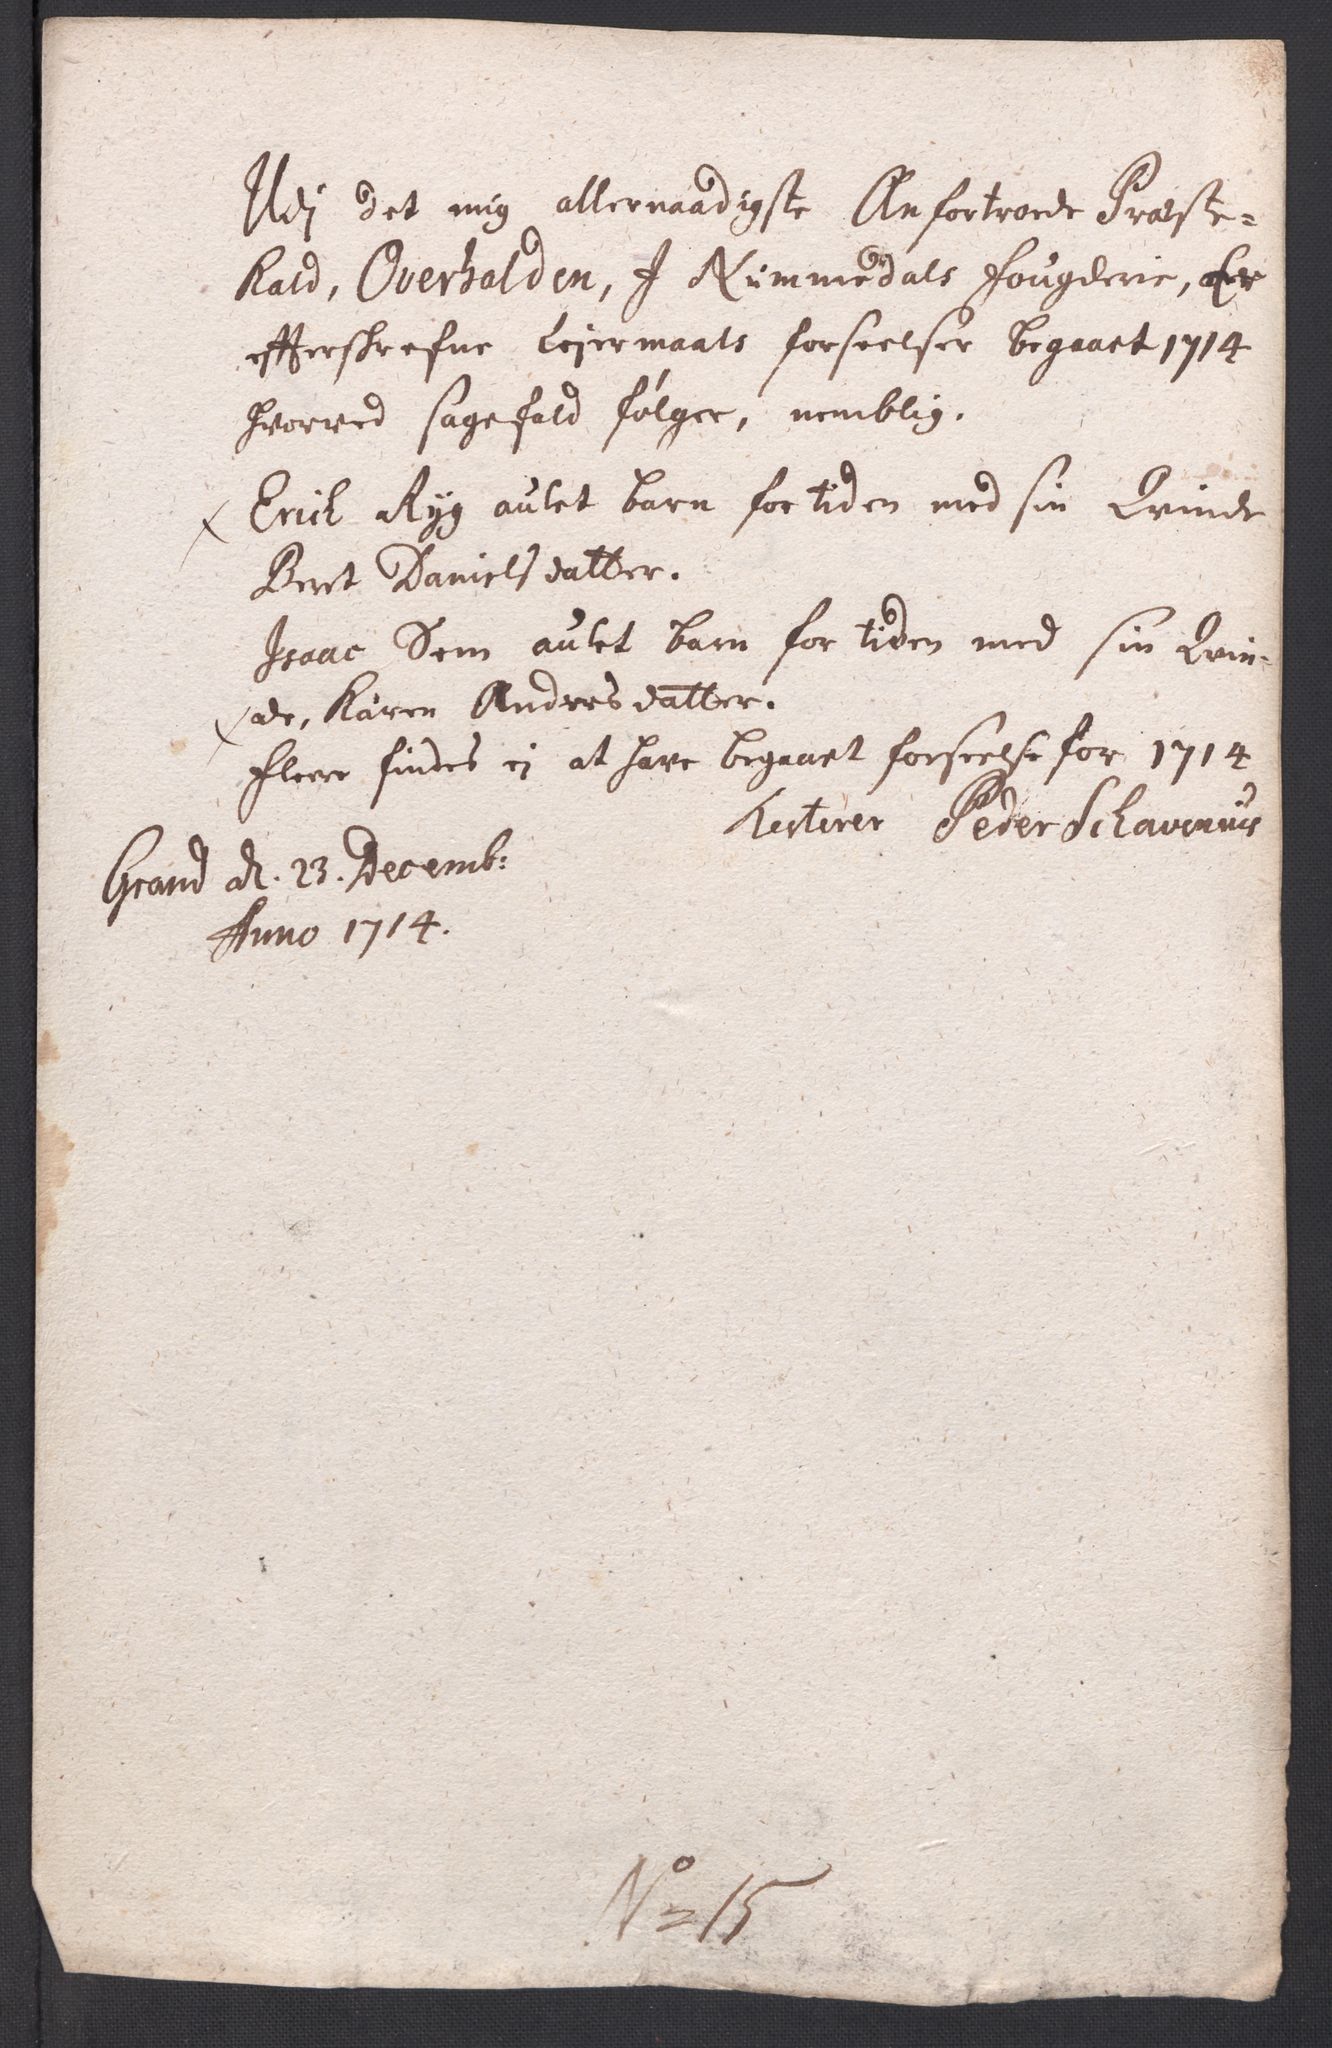 Udj det mig allernaadigste Anfortroede Præste-
Kald, Overhalden, J Nummedals fougderie, Er
effterskrefne Lejermaals forseelser begaaet 1714
hvorved sagefald følger, nemblig.
Erich Ryg aulet barn for tiden med sin Qvinde
Beret Danielsdatter.
Isaac Sem aulet barn for tiden med sin Qvin-
de, Karen Andersdatter.
fleere findes ej at have begaaet forseelse for 1714
testerer Peder Schavenius
Grand d. 23. Decemb:
Anno 1714.
No 15